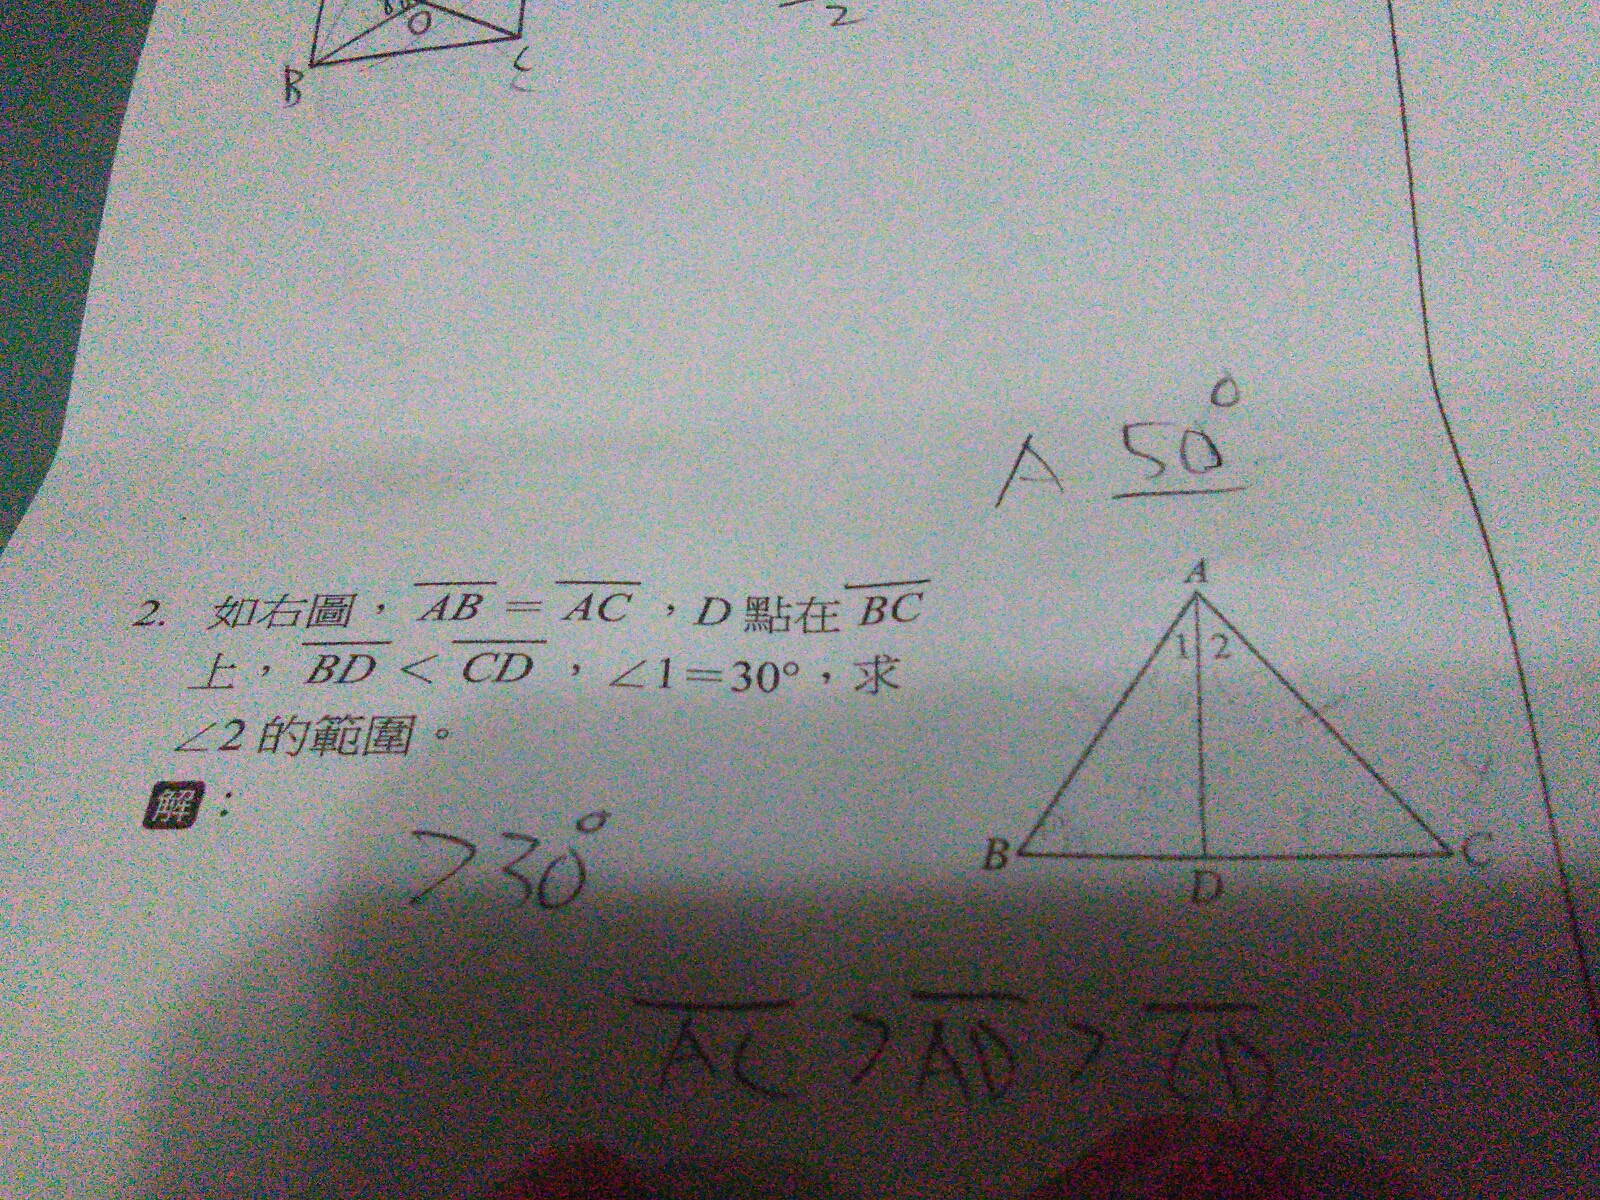 O
B
C
2
A 50°
2. 如右圖，AB = AC，D 點在 BC
上，BD < CD，∠1=30°，求
∠2 的範圍。
解：
A
1 2
B
D
C
>30°
AC > AD > CD